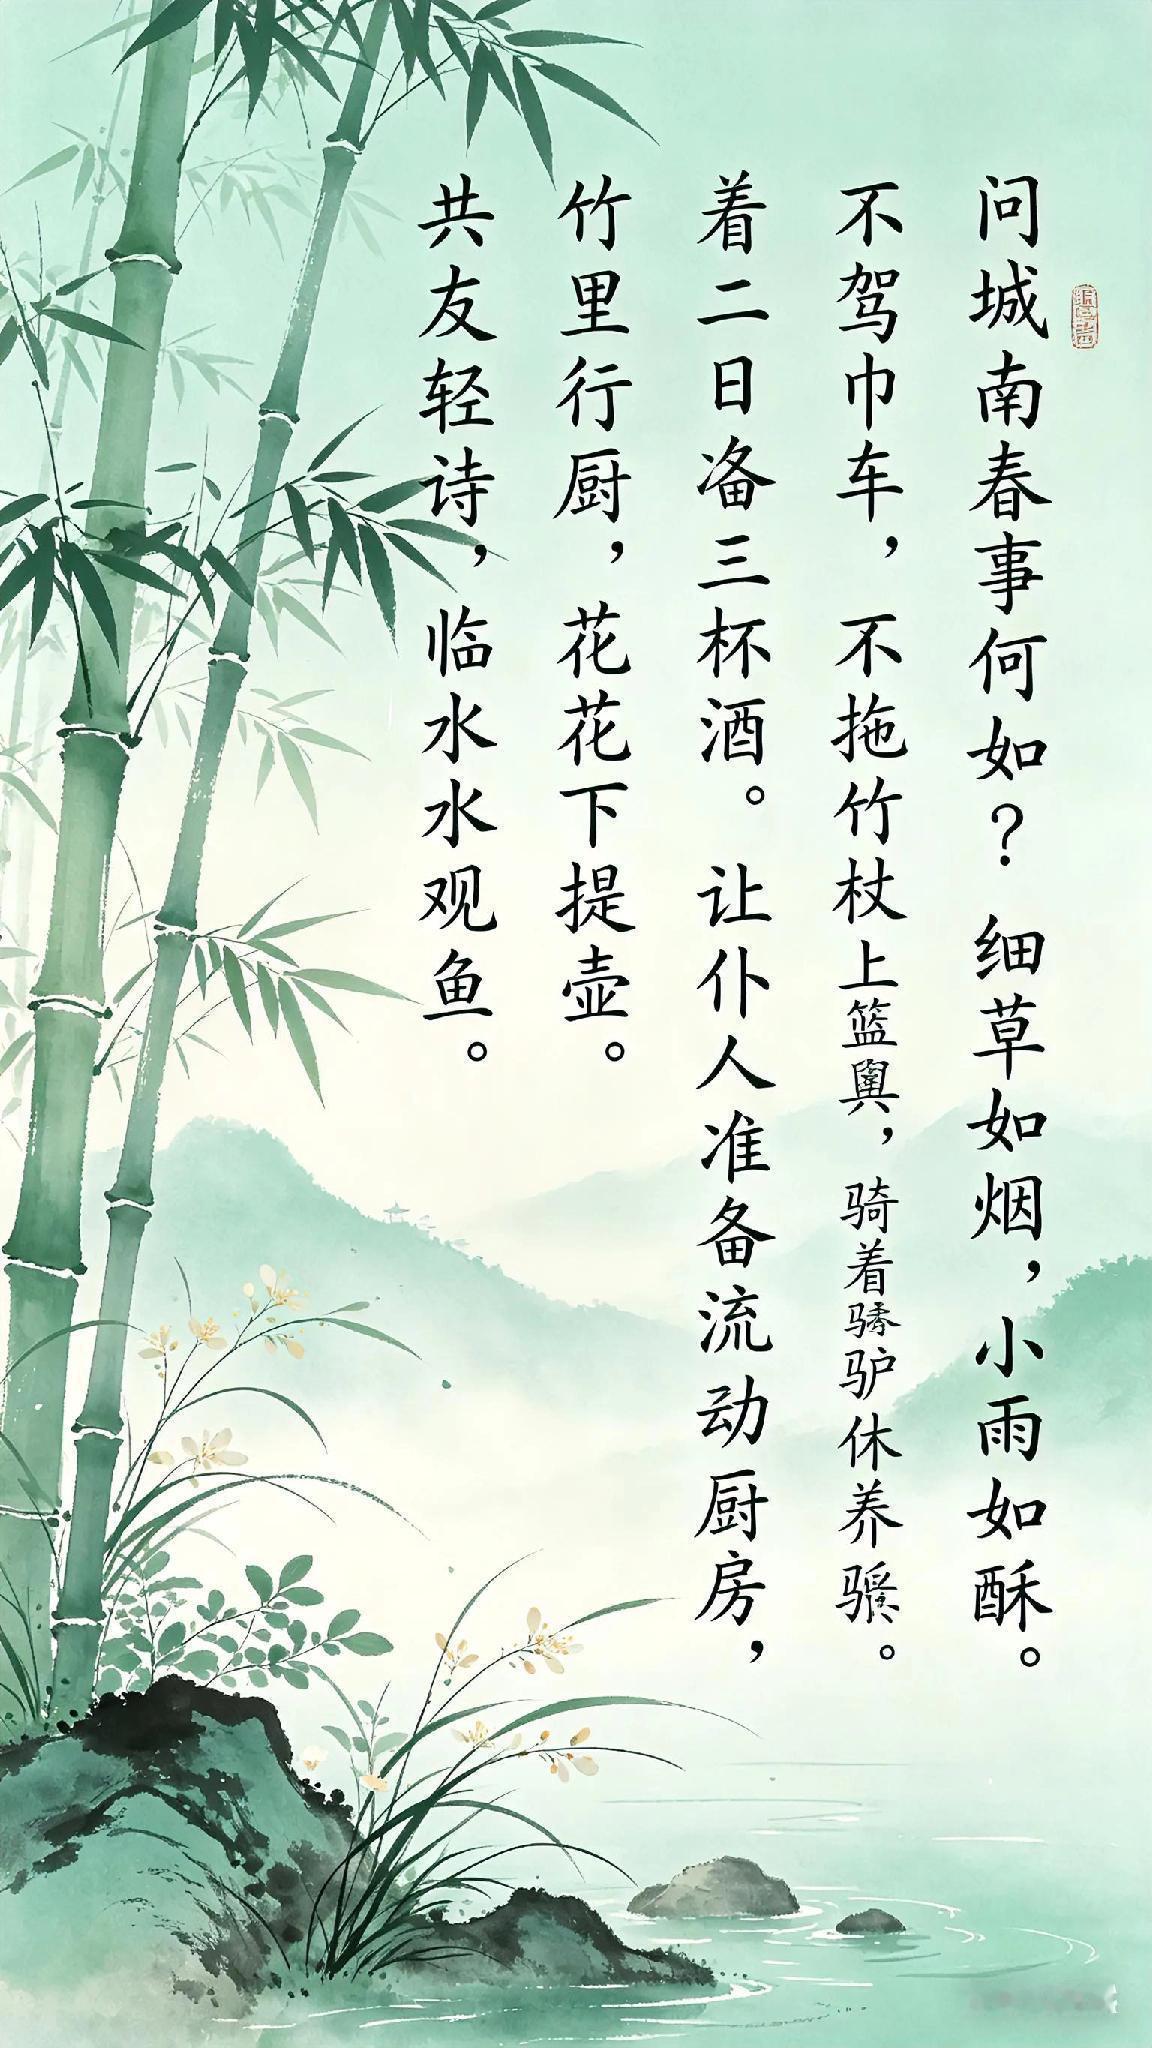 问城南春事何如?细草如烟,小雨如酥。
不驾巾车,不拖竹杖上篮舆,骑着驴休养。
着二日备三杯酒。让仆人准备流动厨房,
竹里行厨,花花下提壶。
共友轻诗,临水水观鱼。